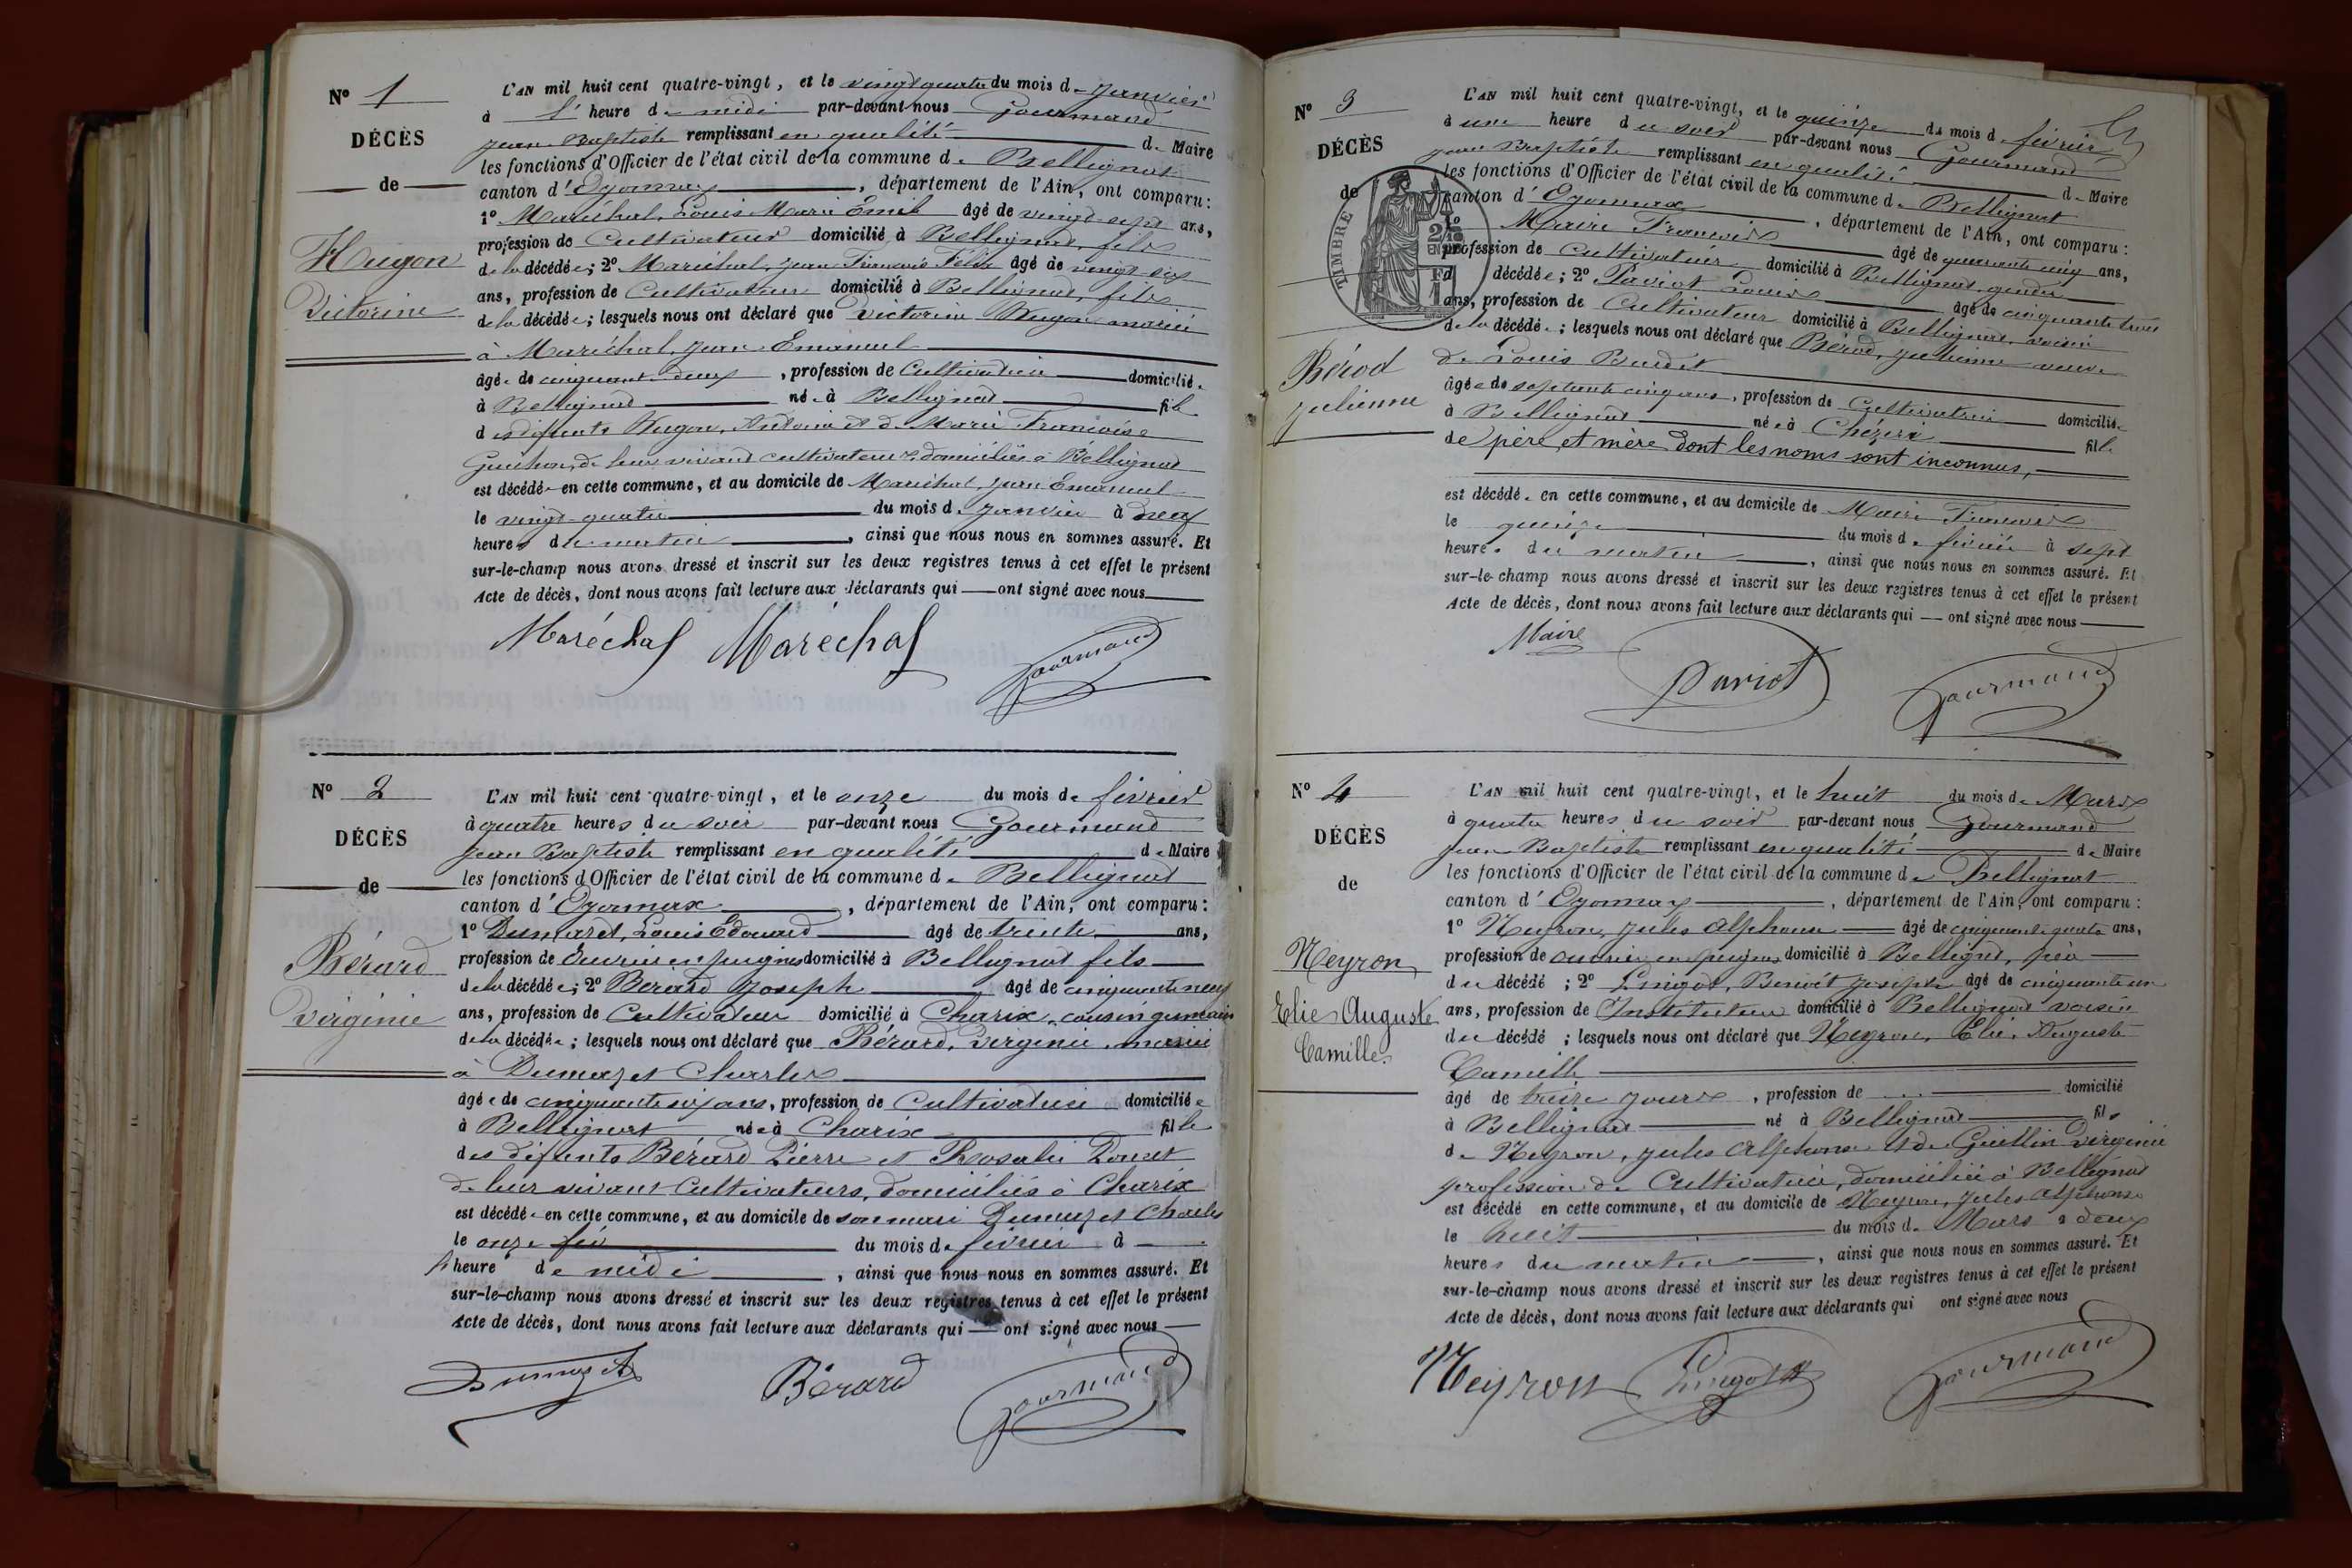 N° 1
DÉCÈS
de
Hugon
Victorine
L'AN mil huit cent quatre-vingt, et le vingt quatre du mois de Janvier
à l' heure de midi par-devant nous Gourmand
Jean Baptiste remplissant en qualité de Maire
les fonctions d'Officier de l'état civil de la commune de Bellignat
canton d'Oyonnax, département de l'Ain, ont comparu:
1° Maréchal, Louis Marie Émile âgé de vingt-sept ans,
profession de Cultivateur domicilié à Bellignat, fils
de la décédée; 2° Maréchal, Jean François Félix âgé de vingt six
ans, profession de Cultivateur domicilié à Bellignat, fils
de la décédée; lesquels nous ont déclaré que Victorine Hugon mariée
à Maréchal, Jean Emanuel
âgée de cinquante deux, profession de Cultivatrice domiciliée
à Bellignat née à Bellignat fille
des défunts Hugon, Antoine et de Marie Françoise
de leur vivant cultivateurs domiciliés à Bellignat
est décédée en cette commune, et au domicile de Maréchal, Jean Emanuel
le vingt-quatre du mois de Janvier à neuf
heures du matin, ainsi que nous nous en sommes assuré. Et
sur-le-champ nous avons dressé et inscrit sur les deux registres tenus à cet effet le présent
Acte de décès, dont nous avons fait lecture aux déclarants qui ont signé avec nous
Maréchal Maréchal Gourmand
N° 2
DÉCÈS
de
Bérard
Virginie
L'AN mil huit cent quatre-vingt, et le onze du mois de février
à quatre heures du soir par-devant nous Gourmand
Jean Baptiste remplissant en qualité de Maire
les fonctions d'Officier de l'état civil de la commune de Bellignat
canton d'Oyonnax, département de l'Ain, ont comparu:
1° Dumazet, Louis Edouard âgé de trente ans,
profession de Ouvrier en peignes domicilié à Bellignat fils
de la décédée; 2° Bérard Joseph âgé de cinquante neuf
ans, profession de Cultivateur domicilié à Charix, cousin germain
de la décédée; lesquels nous ont déclaré que Bérard, Virginie, mariée
à Dumazet Charles
âgée de cinquante six ans, profession de Cultivatrice domiciliée
à Bellignat née à Charix fille
des défunts Bérard Pierre et Rosalie
de leur vivant Cultivateurs, domiciliés à Charix
est décédée en cette commune, et au domicile de son mari Dumazet Charles
le onze fév du mois de février à
l'heure de midi, ainsi que nous nous en sommes assuré. Et
sur-le-champ nous avons dressé et inscrit sur les deux registres tenus à cet effet le présent
Acte de décès, dont nous avons fait lecture aux déclarants qui ont signé avec nous
Dumazet Bérard Gourmand
N° 3
DÉCÈS
de
TIMBRE
Bérod
Julienne
L'AN mil huit cent quatre-vingt, et le quinze du mois de février
à une heure du soir par-devant nous Gourmand
Jean Baptiste remplissant en qualité de Maire
les fonctions d'Officier de l'état civil de la commune de Bellignat
canton d'Oyonnax, département de l'Ain, ont comparu:
1° Maire François âgé de quarante cinq ans,
profession de cultivateur domicilié à Bellignat, gendre
d décédée; 2° Paviot Louis âgé de cinquante trois
ans, profession de Cultivateur domicilié à Bellignat, voisin
de la décédée; lesquels nous ont déclaré que Bérod, Julienne veuve
de Louis
âgée de septante cinq ans, profession de Cultivatrice domiciliée
à Bellignat née à Chézery fille
de père et mère dont les noms sont inconnus,
est décédée en cette commune, et au domicile de Maire François
le quinze du mois de février à sept
heures du matin, ainsi que nous nous en sommes assuré. Et
sur-le-champ nous avons dressé et inscrit sur les deux registres tenus à cet effet le présent
Acte de décès, dont nous avons fait lecture aux déclarants qui ont signé avec nous
Maire Paviot Gourmand
N° 4
DÉCÈS
de
Neyron
Elie Auguste
Camille
L'AN mil huit cent quatre-vingt, et le huit du mois de Mars
à quatre heures du soir par-devant nous Gourmand
Jean Baptiste remplissant en qualité de Maire
les fonctions d'Officier de l'état civil de la commune de Bellignat
canton d'Oyonnax, département de l'Ain, ont comparu:
1° Neyron, Jules Alphonse âgé de cinquante quatre ans,
profession de ouvrier en peignes domicilié à Bellignat, père
du décédé; 2° Benoit Joseph âgé de cinquante un
ans, profession de Instituteur domicilié à Bellignat voisin
du décédé; lesquels nous ont déclaré que Neyron, Elie, Auguste
Camille
âgé de treize jours, profession de domicilié
à Bellignat né à Bellignat fils
de Neyron, Jules Alphonse et de Guillin Virginie
profession de Cultivatrice, domiciliée à Bellignat
est décédé en cette commune, et au domicile de Neyron, Jules Alphonse
le huit du mois de Mars à deux
heures du matin, ainsi que nous nous en sommes assuré. Et
sur-le-champ nous avons dressé et inscrit sur les deux registres tenus à cet effet le présent
Acte de décès, dont nous avons fait lecture aux déclarants qui ont signé avec nous
Neyron Gourmand